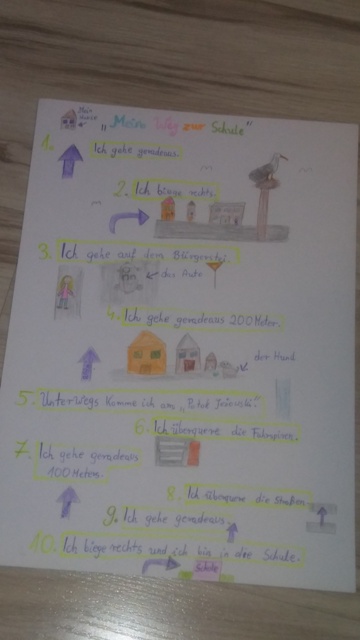 Mein Haus
"Meine Weg zur Schule"
1. Ich gehe geradeaus.
2. Ich biege rechts.
3. Ich gehe auf dem Bürgersteig.
das Auto
4. Ich gehe geradeaus 200 Meter.
der Hund
5. Unterwegs komme ich am
6. Ich überquere die Fahrspuren.
7. Ich gehe geradeaus
100 Metern.
8. Ich überquere die Straßen
9. Ich gehe geradeaus.
10. Ich biege rechts und ich bin in der Schule.
Schule